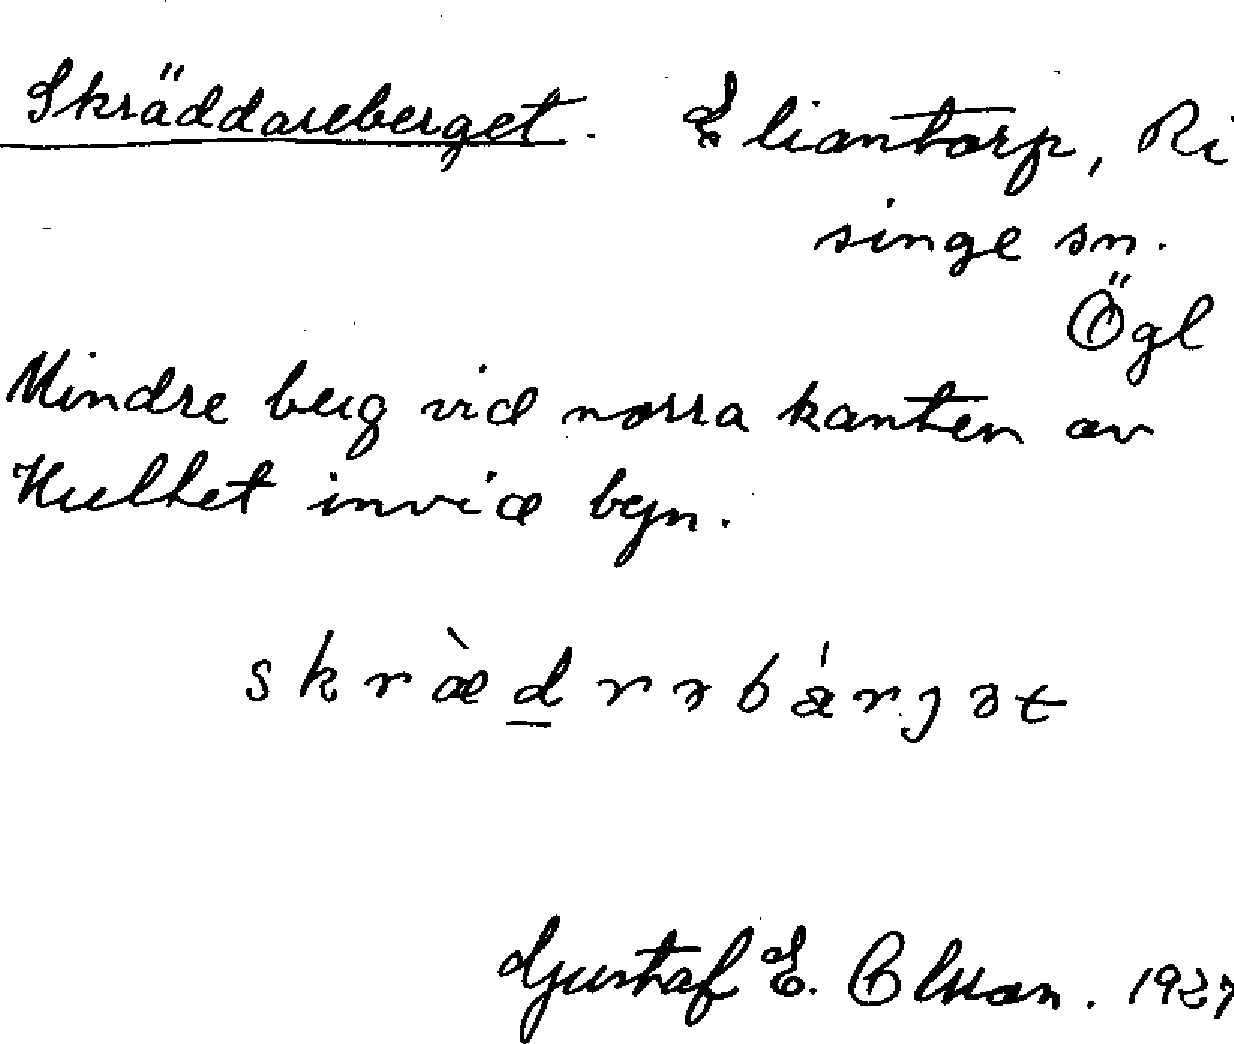 Skräddareberget. Eliantorp, Ri
singe sn.
Ögl
Mindre berg vid norra kanten av
Kullet invid byn.
skrædrrəbárjət
Gustaf E. Olsson. 1927